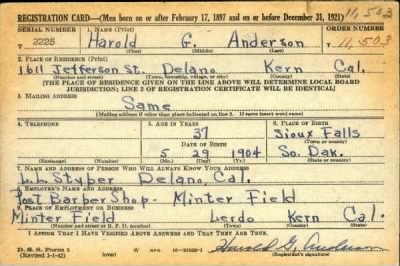 REGISTRATION CARD—(Men born on or after February 17, 1897 and on or before December 31, 1921) 11,503
SERIAL NUMBER 1. NAME (Print) ORDER NUMBER
2225 Harold G. Anderson 11,503
(First) (Middle) (Last)
2. PLACE OF RESIDENCE (Print)
1611 Jefferson St. Delano Kern Cal.
(Number and street) (Town, township, village, or city) (County) (State)
[THE PLACE OF RESIDENCE GIVEN ON THE LINE ABOVE WILL DETERMINE LOCAL BOARD
JURISDICTION; LINE 2 OF REGISTRATION CERTIFICATE WILL BE IDENTICAL]
3. MAILING ADDRESS
Same
[Mailing address if other than place indicated on line 2. If same insert word same]
4. TELEPHONE 5. AGE IN YEARS 6. PLACE OF BIRTH
37 Sioux Falls
DATE OF BIRTH (Town or county)
5 29 1904 So. Dak.
(Exchange) (Number) (Mo.) (Day) (Yr.) (State or country)
7. NAME AND ADDRESS OF PERSON WHO WILL ALWAYS KNOW YOUR ADDRESS
L. L. Styber Delano, Cal.
8. EMPLOYER'S NAME AND ADDRESS
Post Barber Shop - Minter Field
9. PLACE OF EMPLOYMENT OR BUSINESS
Minter Field Lerdo Kern Cal.
(Number and street or R. F. D. number) (Town) (County) (State)
I AFFIRM THAT I HAVE VERIFIED ABOVE ANSWERS AND THAT THEY ARE TRUE.
D. S. S. Form 1
(Revised 1-1-42) (over) Harold G. Anderson
(Registrant's signature)